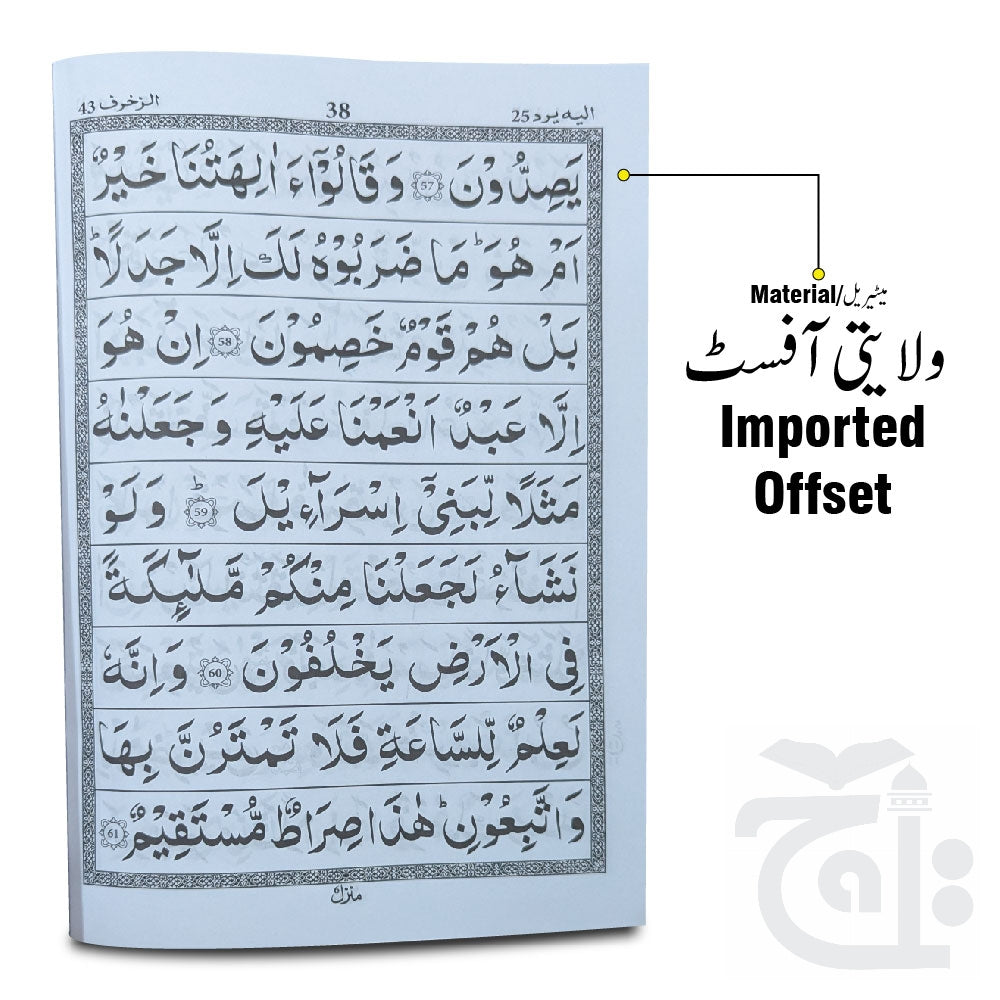 الزخرف 43
38
اليه يرد 25
يَصِدُّوْنَ 57 وَ قَالُوْۤاءَ اٰلِهَتُنَا خَيْرٌ
اَمْ هُوَ ؕ مَا ضَرَبُوْهُ لَكَ اِلَّا جَدَلًا ؕ
بَلْ هُمْ قَوْمٌ خَصِمُوْنَ 58 اِنْ هُوَ
اِلَّا عَبْدٌ اَنْعَمْنَا عَلَيْهِ وَ جَعَلْنٰهُ
مَثَلًا لِّبَنِيْۤ اِسْرَآءِيْلَ ؕ 59 وَ لَوْ
نَشَآءُ لَجَعَلْنَا مِنْكُمْ مَّلٰٓىِٕكَةً
فِي الْاَرْضِ يَخْلُفُوْنَ 60 وَ اِنَّهٗ
لَعِلْمٌ لِّلسَّاعَةِ فَلَا تَمْتَرُنَّ بِهَا
وَ اتَّبِعُوْنِ ؕ هٰذَا صِرَاطٌ مُّسْتَقِيْمٌ 61
منزل ۶
Material/میٹیریل
ولایتی آفسٹ
Imported
Offset
تاج